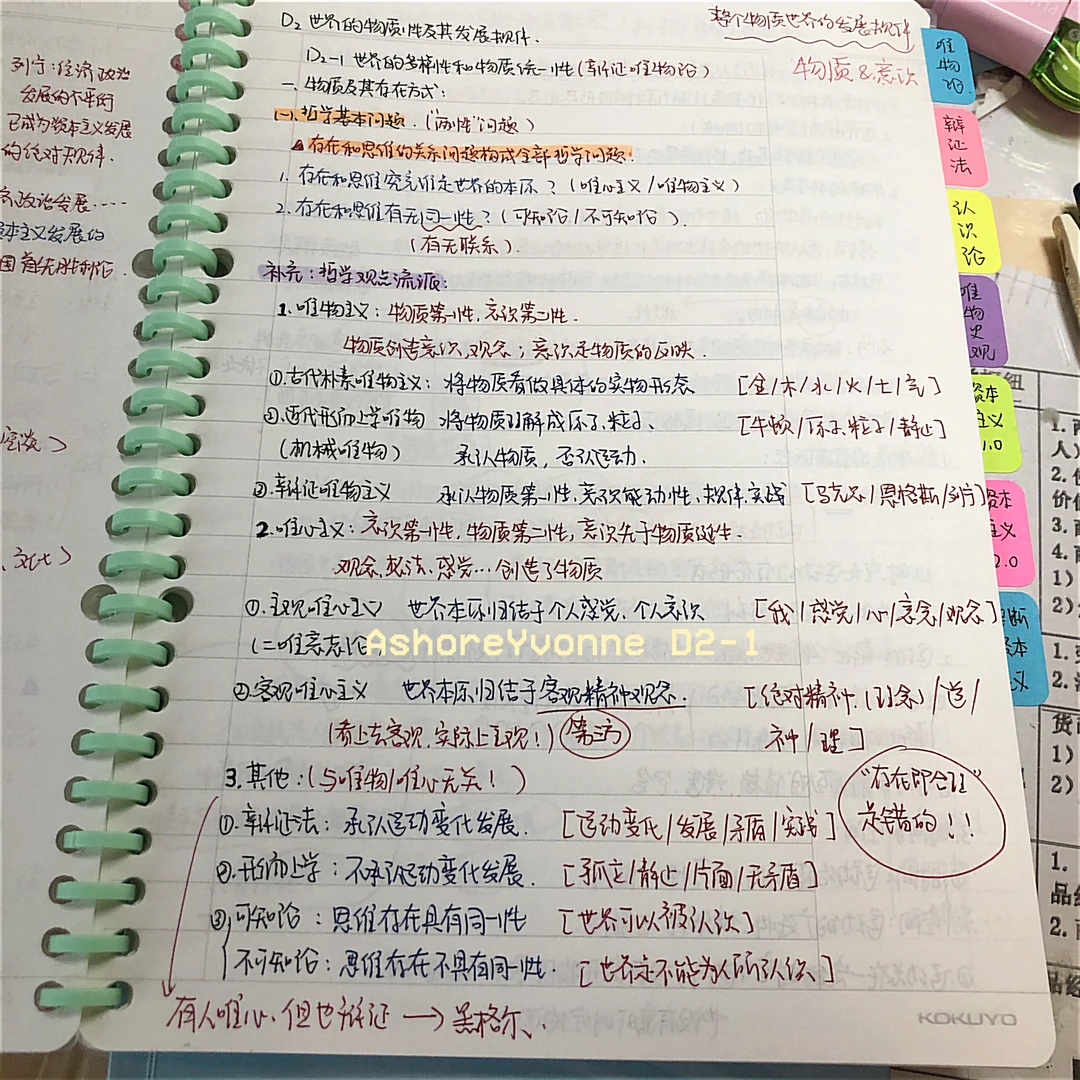 列宁：经济政治
发展的不平衡
已成为资本主义发展
的绝对规律.
政治发展....
资本主义发展的
国首先胜利论.
整个物质世界的发展规律
物质&意识
D2 世界的物质性及其发展规律.
D2-1 世界的多样性和物质统一性(辩证唯物论)
一. 物质及其存在方式：
(一). 哲学基本问题. ("两性"问题)
▲存在和思维的关系问题构成全部哲学问题.
1. 存在和思维究竟谁是世界的本原？(唯心主义/唯物主义)
2. 存在和思维有无同一性？(可知论/不可知论).
(有无联系).
补充：哲学观点流派：
1. 唯物主义：物质第一性, 意识第二性.
物质创造意识、观念；意识是物质的反映.
①.古代朴素唯物主义：将物质看做具体的实物形态 [金/木/水/火/土/气]
②.近代形而上学唯物 将物质理解成原子、粒子、 [牛顿/原子、粒子/静止]
(机械唯物) 承认物质，否认运动.
③.辩证唯物主义 承认物质第一性、意识能动性、规律、实践 [马克思/恩格斯/列]
2.唯心主义：意识第一性, 物质第二性, 意识先于物质诞生.
观念、想法、感觉…创造了物质
①.主观唯心主义 世界本原归结于个人感觉、个人意识 [我/感觉/心/意念/观念]
(=唯意志论)
AshoreYvonne D2-1
②.客观唯心主义 世界本原归结于客观精神观念. [绝对精神、(理念)/道/
(看上去客观, 实际上主观！) (第三方) 神/理]
3. 其他：(与唯物/唯心无关！)
"存在即合理"
是错的！！
①. 辩证法：承认运动变化发展. [运动变化/发展/矛盾/实践]
②.形而上学：不承认运动变化发展. [孤立/静止/片面/无矛盾]
③.可知论：思维存在具有同一性 [世界可以被认识]
不可知论：思维存在不具有同一性. [世界是不能为人所认识]
有人唯心、但也辩证 → 黑格尔、
KOKUYO
唯物论.
辩证法
认识论
唯物史观
资本主义1.0
资本主义2.0